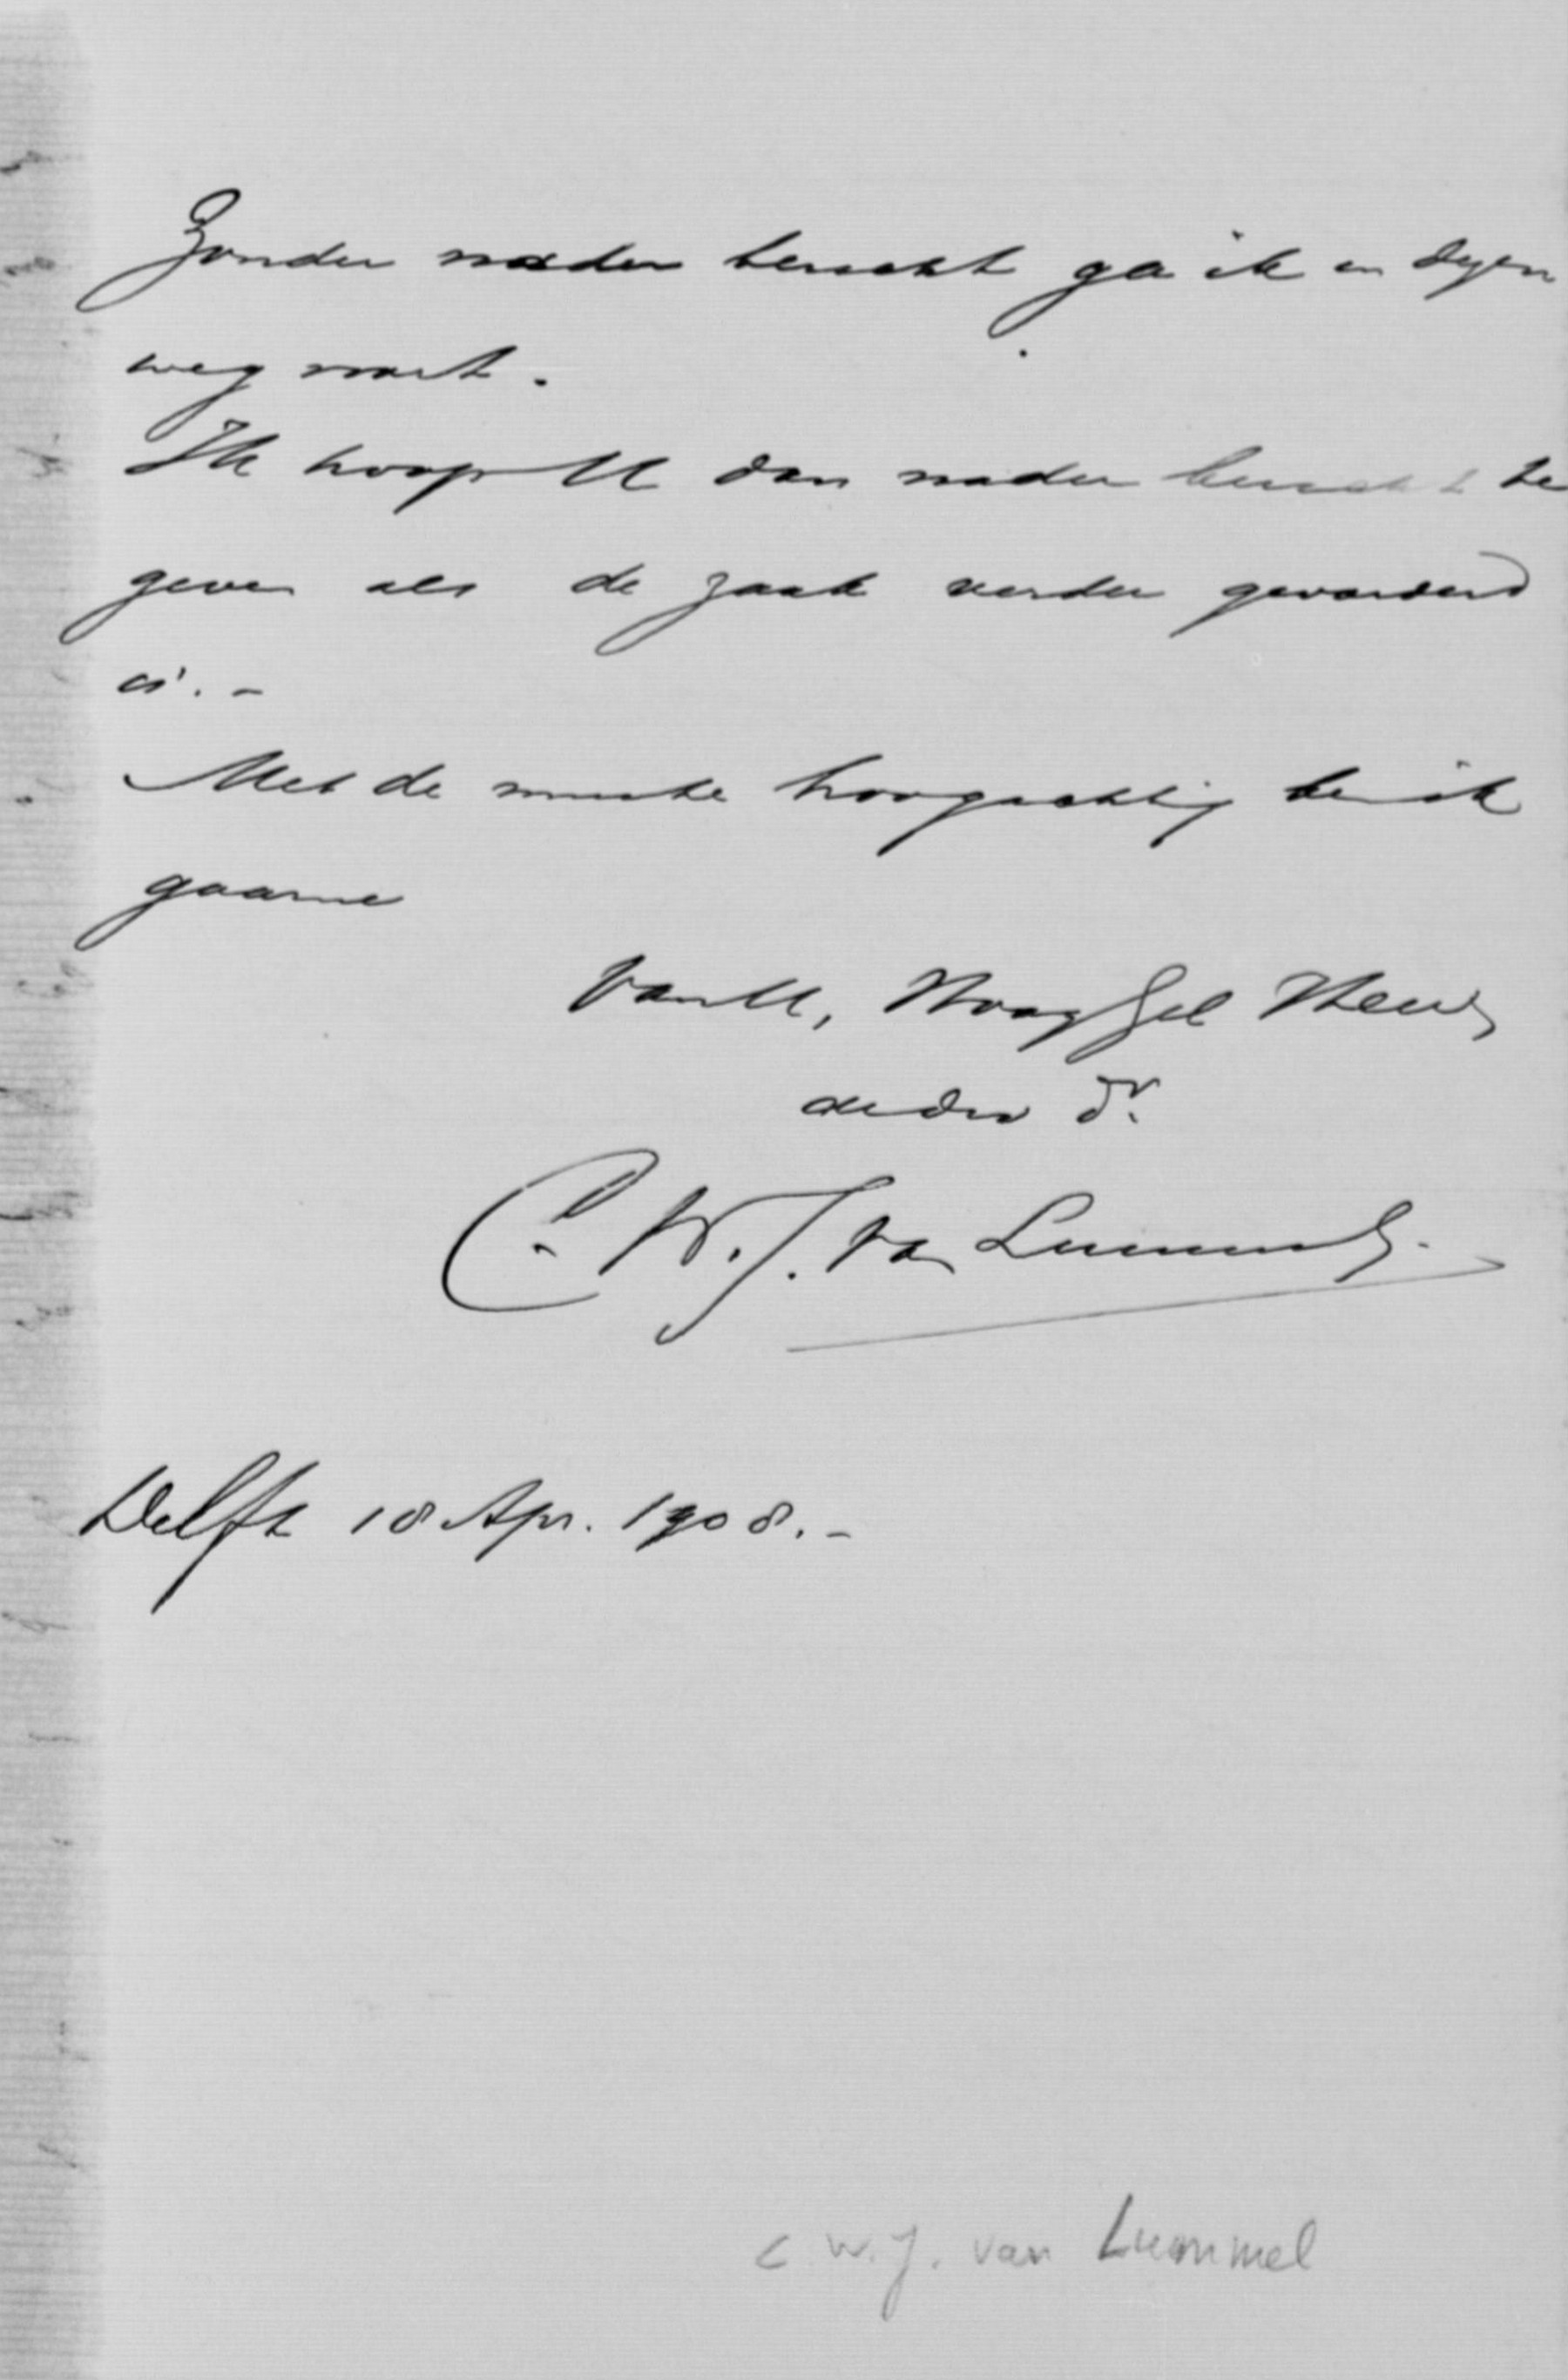 Zonder nader bericht ga ik in dezen
weg voort.
Ik hoop U dan nader bericht te
geven als de zaak verder gevorderd
is. -
Met de meeste hoogachting ben ik
gaarne
van U, HoogGel Heer,
dr.
C. W. J. van Lummel.
Delft 18 Apr. 1908. -
C. W. J. van Lummel